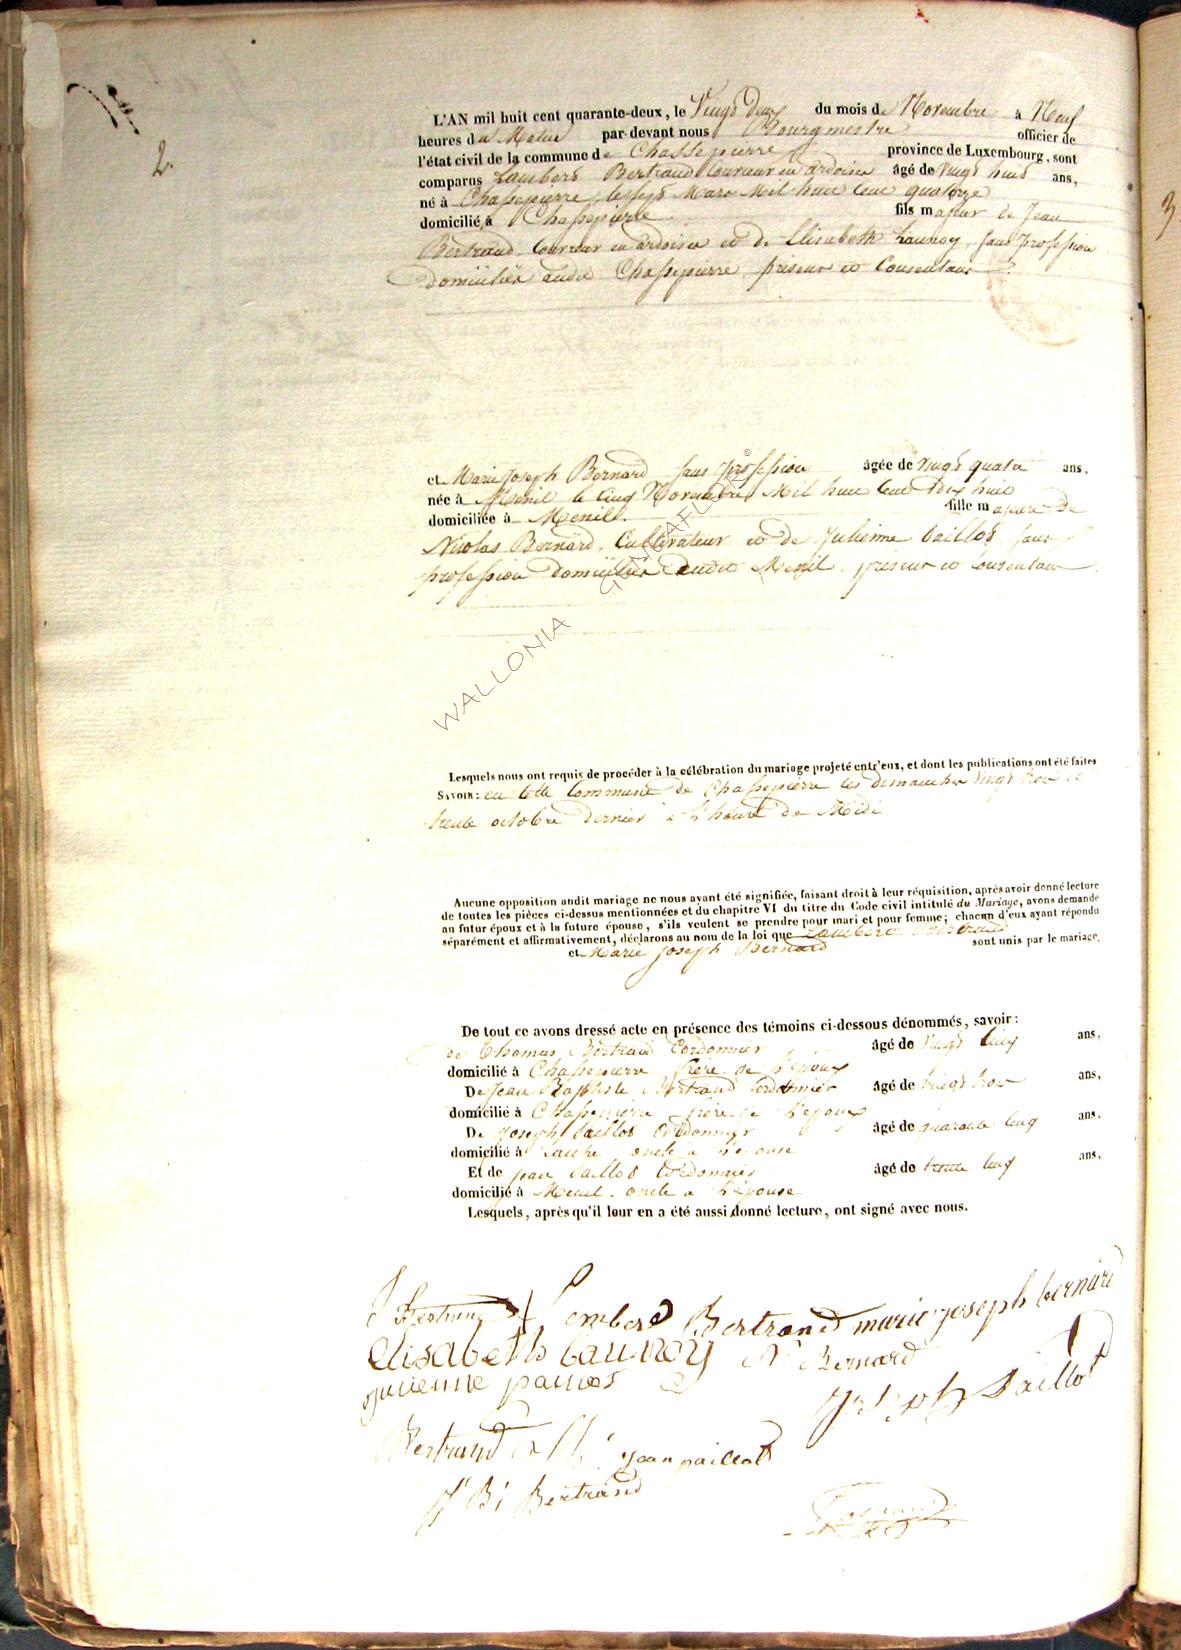 2.
3
L'AN mil huit cent quarante-deux, le Vingt deux du mois de Novembre à Neuf
heures du Matin par-devant nous Bourgmestre officier de
l'état civil de la commune de Chassepierre province de Luxembourg, sont
comparus Lambert Bertrand Couvreur en ardoises âgé de vingt huit ans,
né à Chassepierre, le sept Mars Mil huit cent quatorze
domicilié à Chassepierre fils majeur de Jean
Bertrand, Couvreur en ardoises et de Elisabeth Launoy, sans profession
domiciliés audit Chassepierre, présent et Consentant
et Marie Joseph Bernard sans profession âgée de vingt quatre ans,
née à Menil le cinq Novembre Mil huit cent dix huit
domiciliée à Menil. fille majeure de
Nicolas Bernard, Cultivateur et de Julienne Paillot, sans
profession domiciliés audit Menil. présent et consentant
WALLONIA
Lesquels nous ont requis de procéder à la célébration du mariage projeté entr'eux, et dont les publications ont été faites
SAVOIR: en cette Commune de Chassepierre les dimanches vingt trois et
trente octobre dernier à l'heure de Midi
Aucune opposition audit mariage ne nous ayant été signifiée, faisant droit à leur réquisition, après avoir donné lecture
de toutes les pièces ci-dessus mentionnées et du chapitre VI du titre du Code civil intitulé du Mariage, avons demandé
au futur époux et à la future épouse, s'ils veulent se prendre pour mari et pour femme; chacun d'eux ayant répondu
séparément et affirmativement, déclarons au nom de la loi que Lambert Bertrand
et Marie Joseph Bernard sont unis par le mariage.
De tout ce avons dressé acte en présence des témoins ci-dessous dénommés, savoir:
de Thomas Bertrand Cordonnier âgé de vingt cinq ans,
domicilié à Chassepierre frère de l'époux
De Jean Baptiste Bertrand Cordonnier âgé de vingt trois ans,
domicilié à Chassepierre frère de l'époux
De Joseph Paillot Cordonnier âgé de quarante cinq ans,
domicilié à oncle à l'épouse
Et de jean Paillot Cordonnier âgé de trente cinq ans,
domicilié à Menil. oncle à l'épouse
Lesquels, après qu'il leur en a été aussi donné lecture, ont signé avec nous.
J Bertrand Lambert Bertrand marie joseph bernard
Elisabeth Launoy N Bernard
julienne paillot Joseph Paillot
Bertrand jean paillot
J B Bertrand